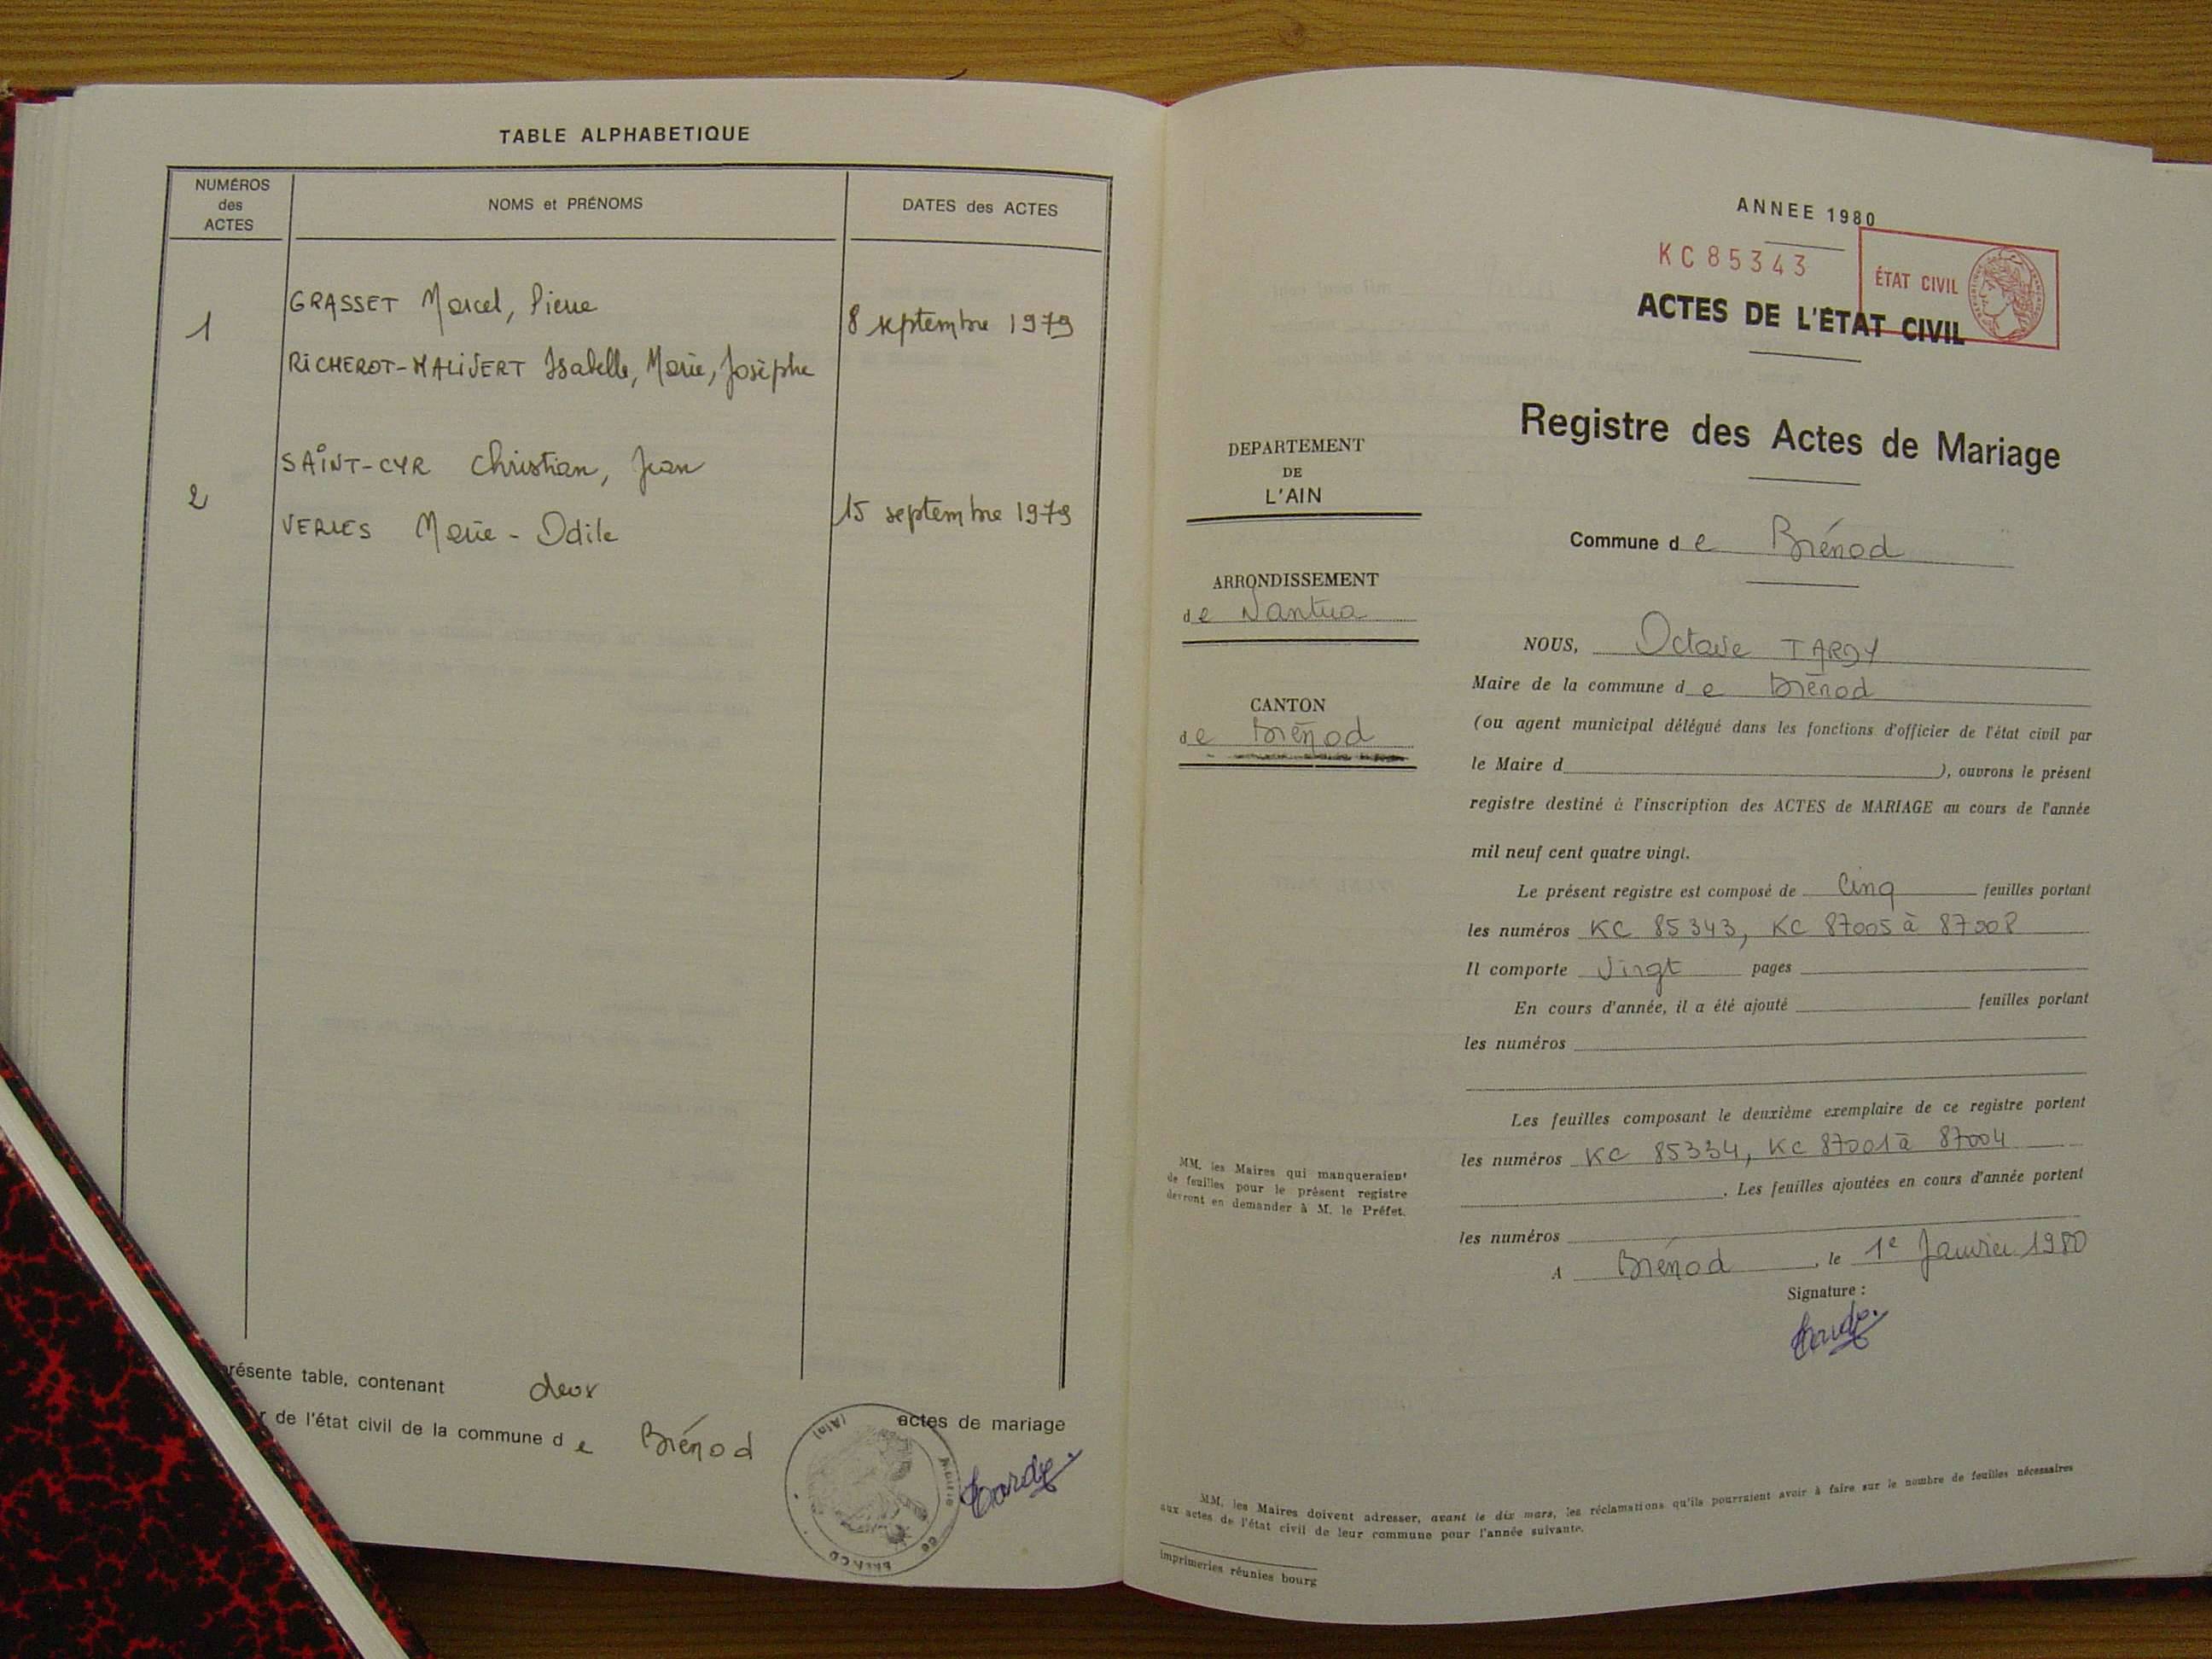 TABLE ALPHABETIQUE
NUMÉROS
des
ACTES
NOMS et PRÉNOMS
DATES des ACTES
1
GRASSET Marcel, Pierre
RICHEROT-MALIVERT Isabelle, Marie, Josèphe
8 septembre 1979
2
SAINT-CYR Christian, Jean
VERIES Marie-Odile
15 septembre 1979
présente table, contenant deux actes de mariage
r de l'état civil de la commune de Brénod
Mairie de BRENOD (Ain)
ANNEE 1980
KC85343
ÉTAT CIVIL
ACTES DE L'ÉTAT CIVIL
Registre des Actes de Mariage
DEPARTEMENT
DE
L'AIN
Commune de Brénod
ARRONDISSEMENT
de Nantua
CANTON
de Brénod
NOUS, Octave TARDY
Maire de la commune de Brénod
(ou agent municipal délégué dans les fonctions d'officier de l'état civil par
le Maire d ), ouvrons le présent
registre destiné à l'inscription des ACTES de MARIAGE au cours de l'année
mil neuf cent quatre vingt.
Le présent registre est composé de Cinq feuilles portant
les numéros KC 85343, KC 87005 à 87008
Il comporte Vingt pages
En cours d'année, il a été ajouté feuilles portant
les numéros
Les feuilles composant le deuxième exemplaire de ce registre portent
les numéros KC 85334, KC 87001 à 87004
. Les feuilles ajoutées en cours d'année portent
les numéros
A Brénod, le 1e Janvier 1980
Signature :
Tardy
MM. les Maires qui manqueraient
de feuilles pour le présent registre
devront en demander à M. le Préfet.
MM. les Maires doivent adresser, avant le dix mars, les réclamations qu'ils pourraient avoir à faire sur le nombre de feuilles nécessaires
aux actes de l'état civil de leur commune pour l'année suivante.
imprimeries réunies bourg